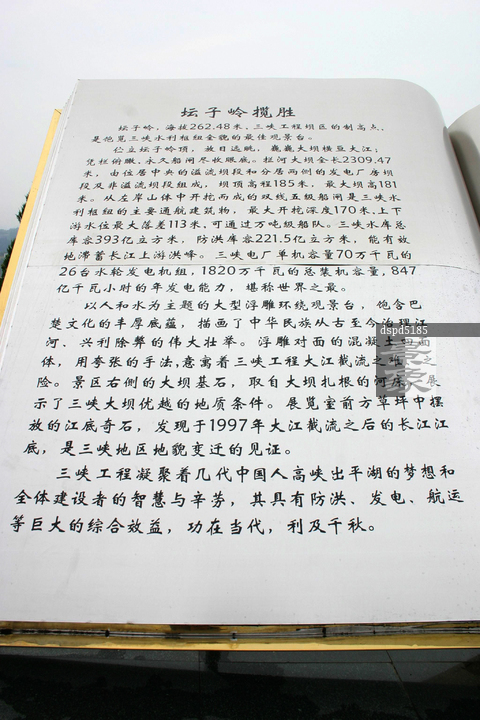 坛子岭揽胜
坛子岭，海拔262.48米，三峡工程坝区的制高点，
是饱览三峡水利枢纽全貌的最佳观景台。
伫立坛子岭顶，放目远眺，巍巍大坝横亘大江；
凭栏俯瞰，永久船闸尽收眼底。拦河大坝全长2309.47
米，由位居中央的溢流坝段和分居两侧的发电厂房坝
段及非溢流坝段组成，坝顶高程185米，最大坝高181
米。从左岸山体中开挖而成的双线五级船闸是三峡水
利枢纽的主要通航建筑物，最大开挖深度170米，上下
游水位最大落差113米，可通过万吨级船队。三峡水库总
库容393亿立方米，防洪库容221.5亿立方米，能有效
地滞蓄长江上游洪峰。三峡电厂单机容量70万千瓦的
26台水轮发电机组，1820万千瓦的总装机容量，847
亿千瓦小时的年发电能力，堪称世界之最。
以人和水为主题的大型浮雕环绕观景台，饱含巴
楚文化的丰厚底蕴，描画了中华民族从古至今治理江
河、兴利除弊的伟大壮举。浮雕对面的混凝土四面
体，用夸张的手法，意寓着三峡工程大江截流之艰
险。景区右侧的大坝基石，取自大坝扎根的河床，展
示了三峡大坝优越的地质条件。展览室前方草坪中摆
放的江底奇石，发现于1997年大江截流之后的长江江
底，是三峡地区地貌变迁的见证。
三峡工程凝聚着几代中国人高峡出平湖的梦想和
全体建设者的智慧与辛劳，其具有防洪、发电、航运
等巨大的综合效益，功在当代，利及千秋。
dspd5185